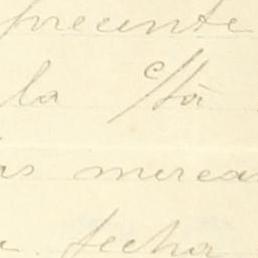 precente
la c/ta
as merca
a fecha